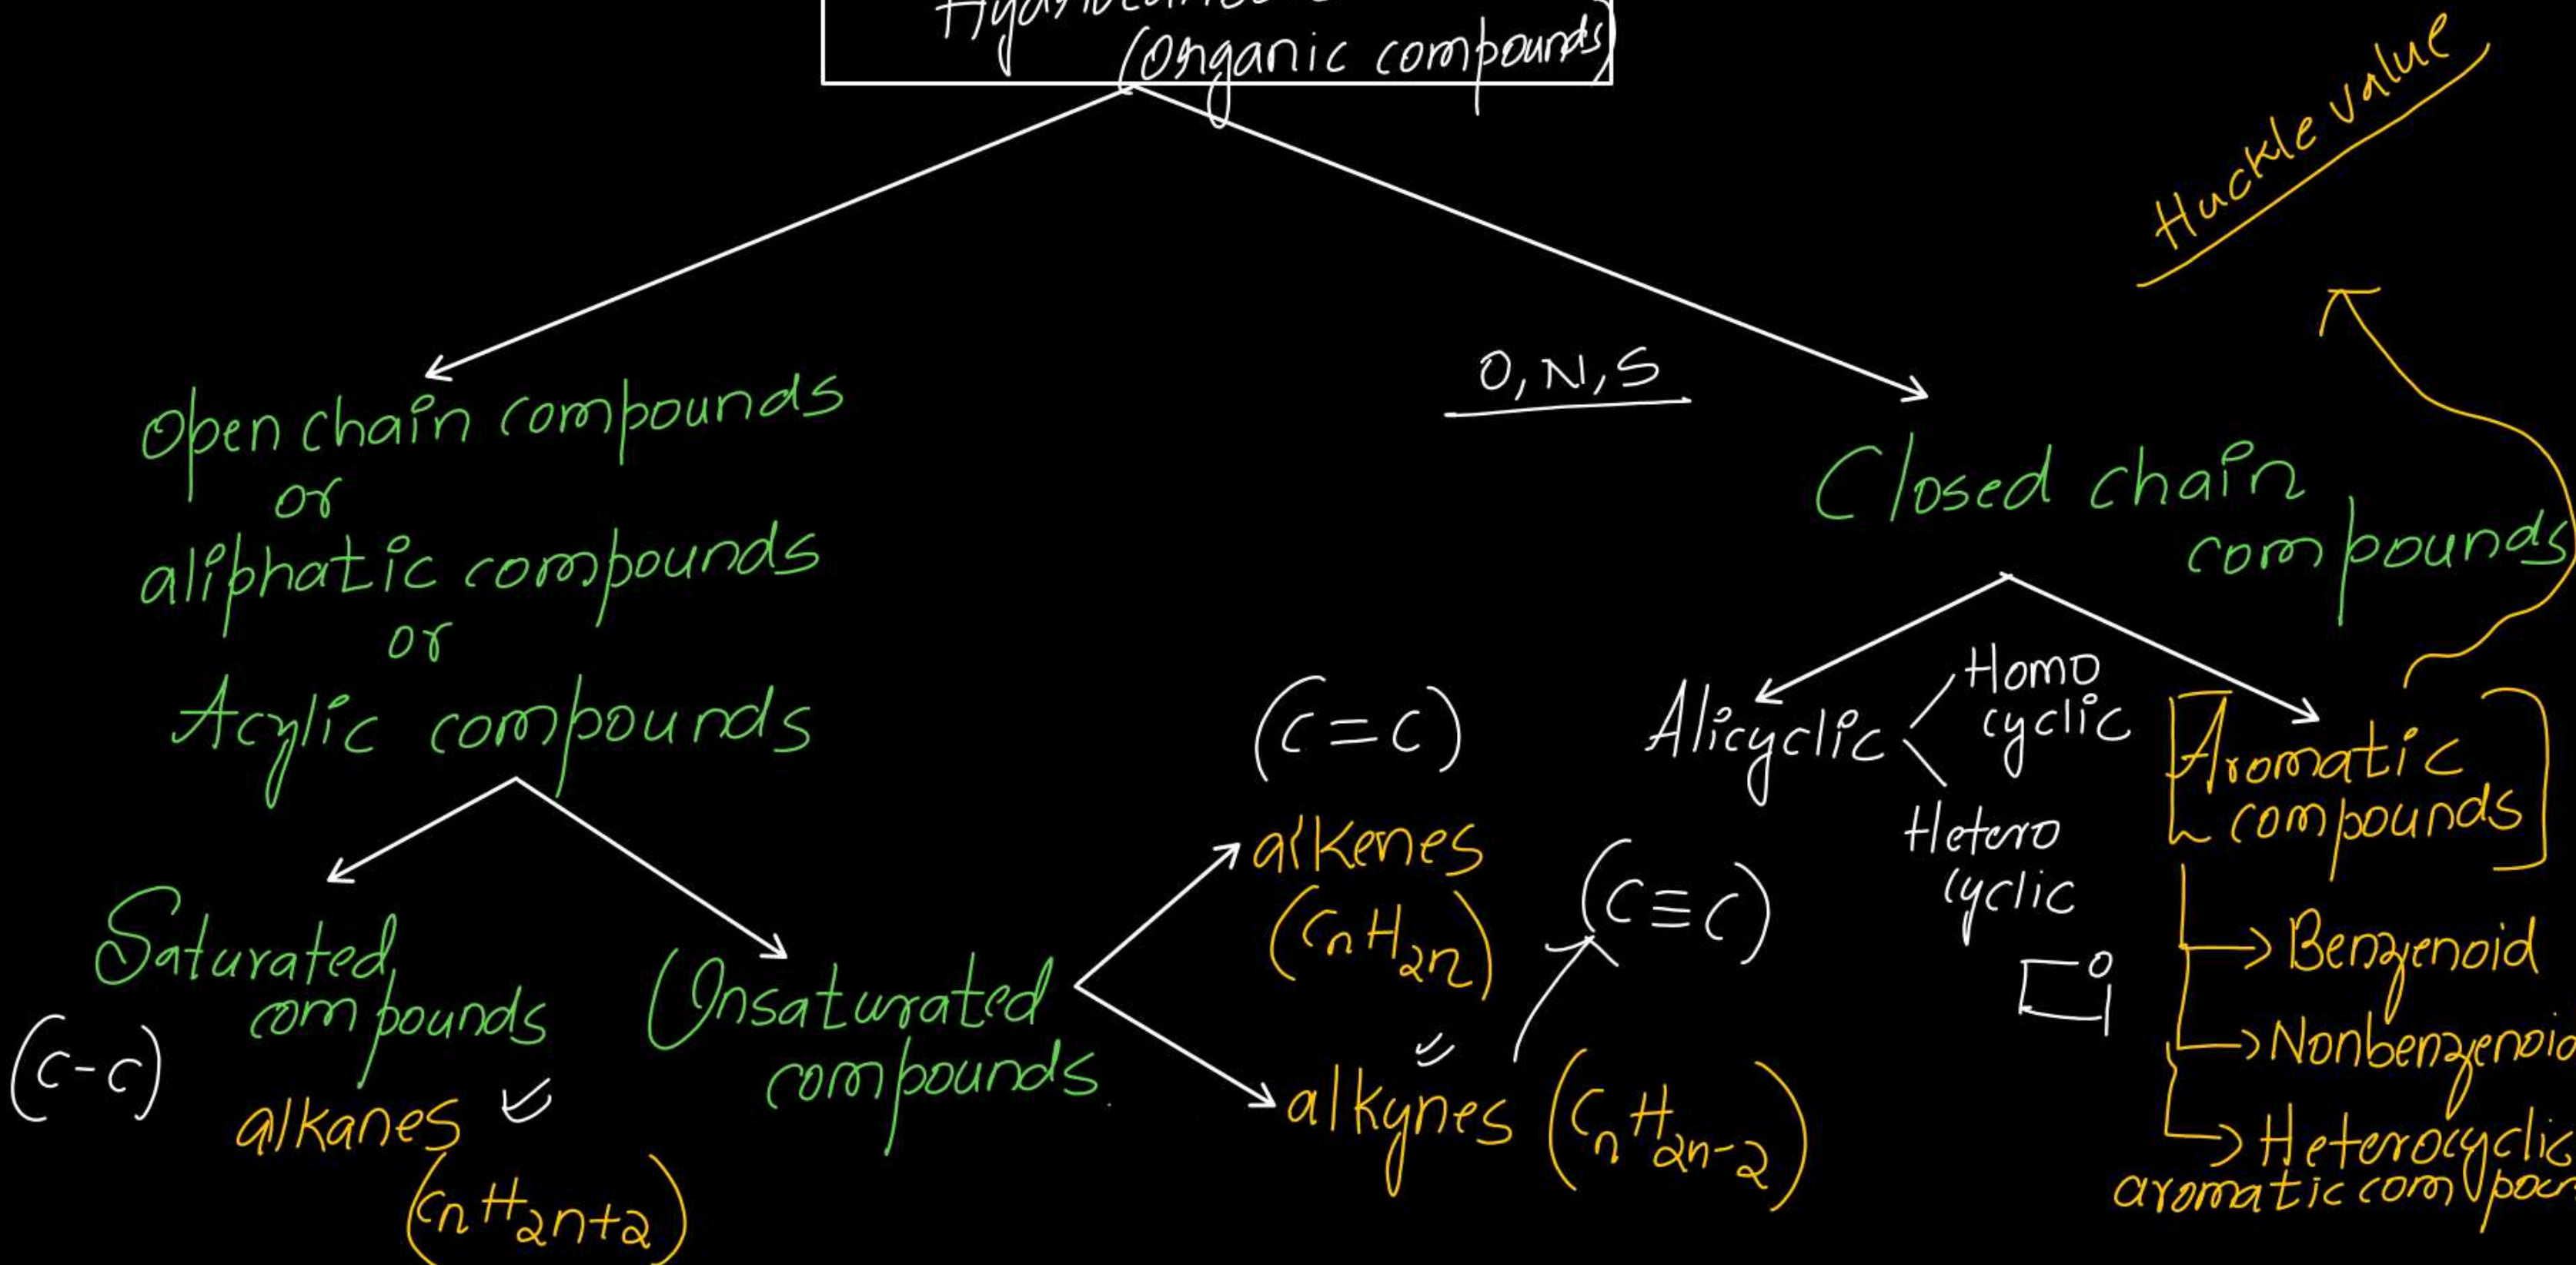 (Organic compounds)
Huckle value
O, N, S
Open chain compounds
or
aliphatic compounds
or
Acylic compounds
Closed chain
compounds
Saturated
compounds
(C-C)
alkanes
(CnH2n+2)
Unsaturated
compounds
(C=C)
alkenes
(CnH2n)
(C≡C)
alkynes (CnH2n-2)
Alicyclic
Homo
cyclic
Hetero
cyclic
O
Aromatic
compounds
Benzenoid
Nonbenzenoid
Heterocyclic
aromatic